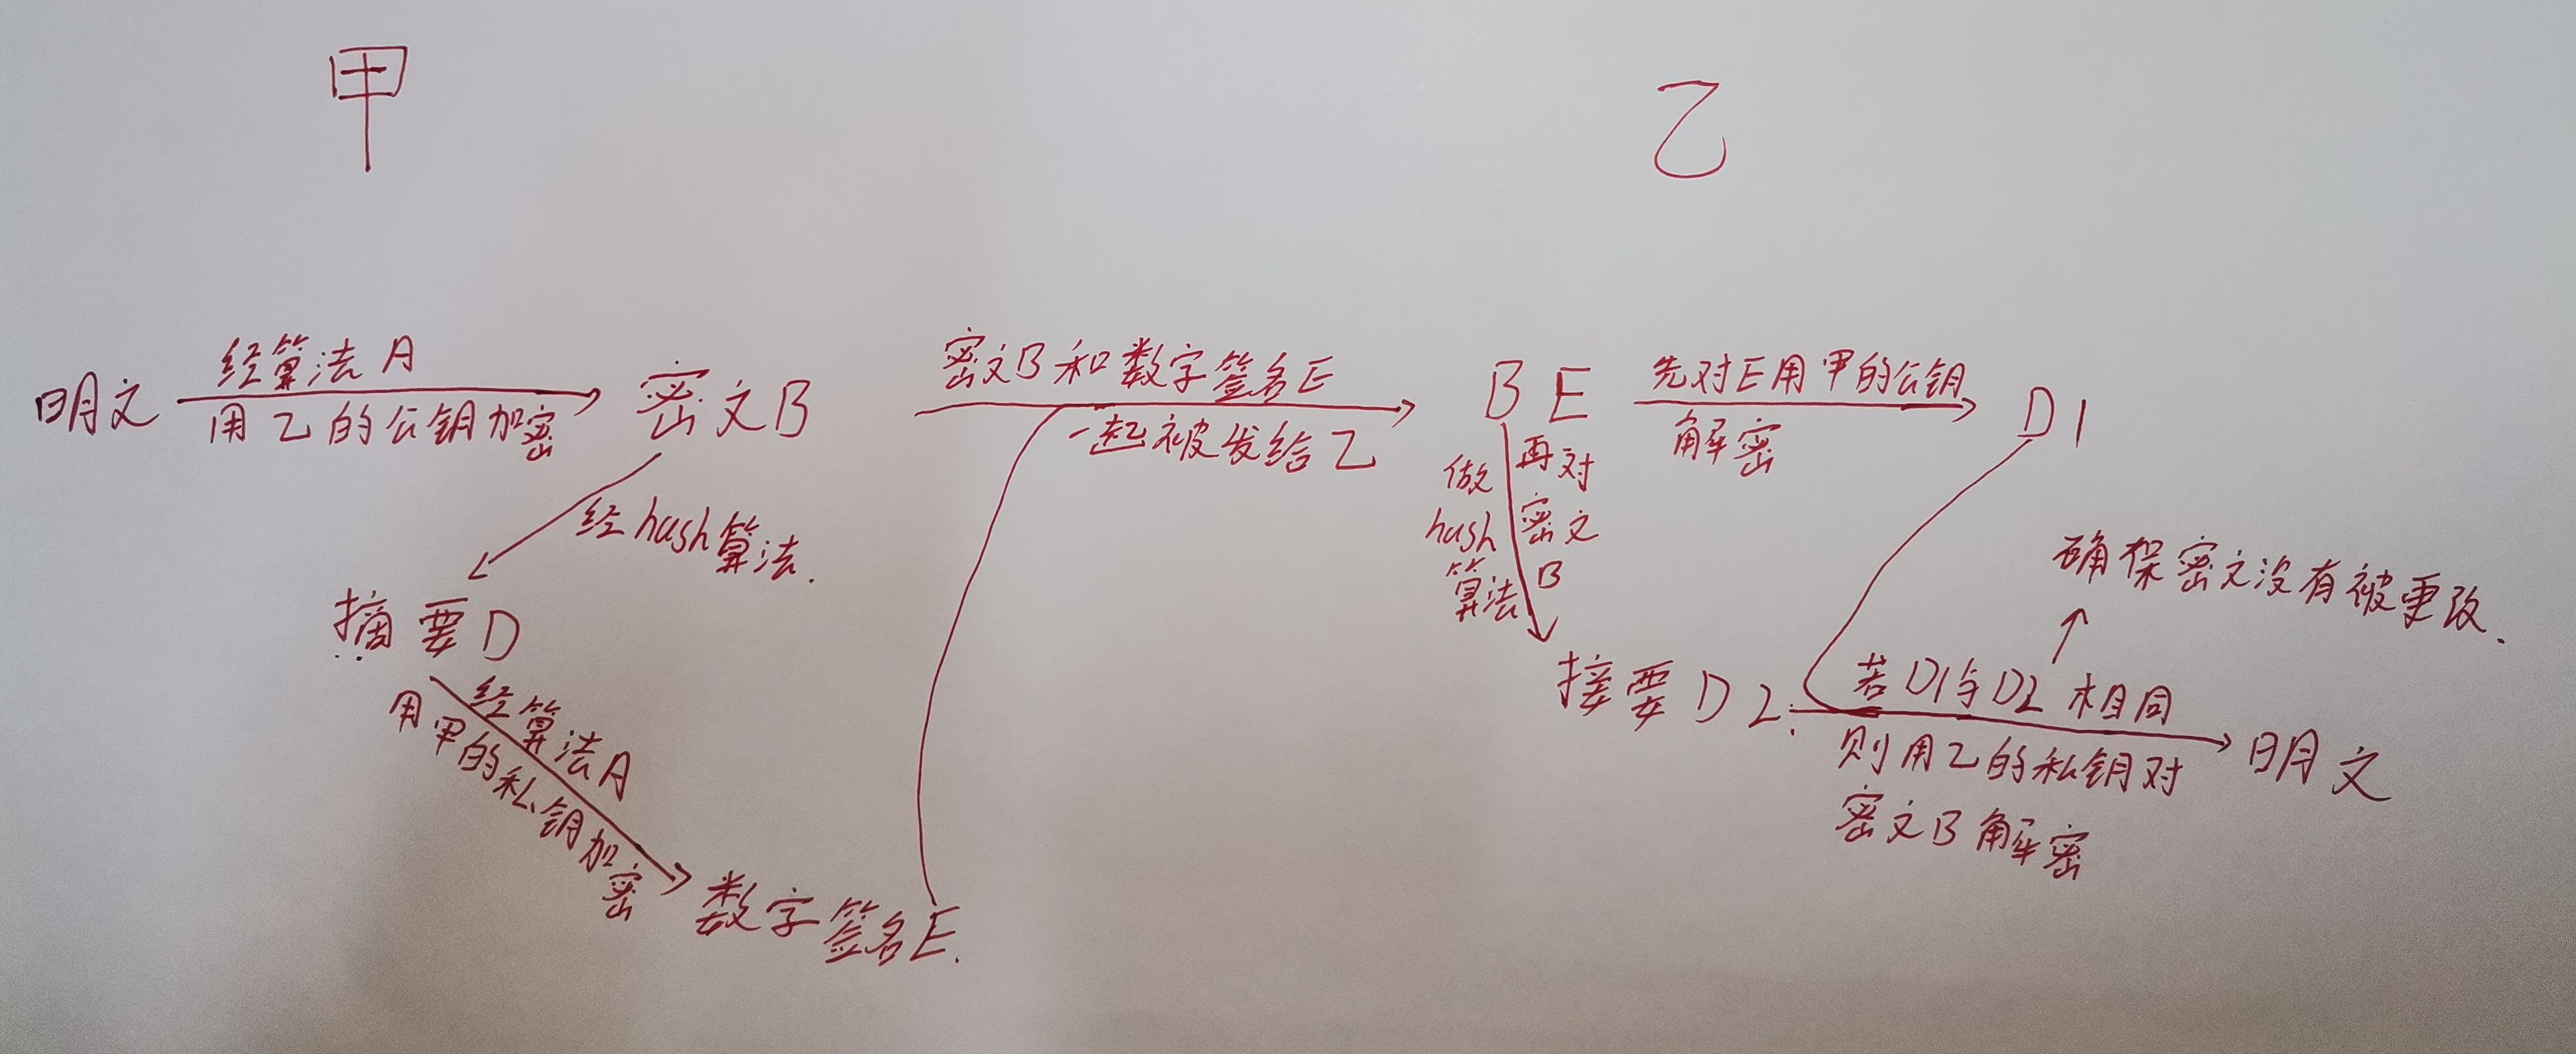 甲
乙
明文
经算法A
用乙的公钥加密
密文B
经hash算法.
摘要D
经算法A
用甲的私钥加密
数字签名E.
密文B和数字签名E
一起被发给乙
B E
先对E用甲的公钥
解密
D1
做
hash
算法
再对
密文
B
摘要D2.
若D1与D2相同
则用乙的私钥对
密文B解密
确保密文没有被更改.
明文